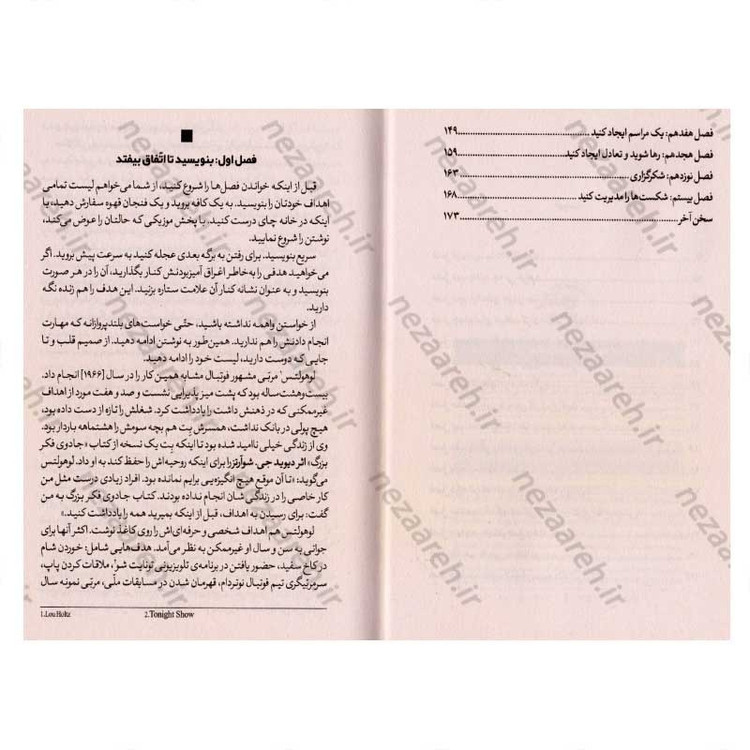 فصل هفدهم: یک مراسم ایجاد کنید ..... ۱۴۹
فصل هجدهم: رها شوید و تعادل ایجاد کنید ..... ۱۵۹
فصل نوزدهم: شکرگزاری ..... ۱۶۳
فصل بیستم: شکست‌ها را مدیریت کنید ..... ۱۶۸
سخن آخر ..... ۱۷۳
فصل اول: بنویسید تا اتّفاق بیفتد
قبل از اینکه خواندن فصل‌ها را شروع کنید، از شما می‌خواهم لیست تمامی
اهداف خودتان را بنویسید. به یک کافه بروید و یک فنجان قهوه سفارش دهید، یا
اینکه در خانه چای درست کنید. با پخش موزیکی که حالتان را عوض می‌کند،
نوشتن را شروع نمایید.
سریع بنویسید. برای رفتن به برگه بعدی عجله کنید به سرعت پیش بروید. اگر
می‌خواهید هدفی را به‌خاطر اغراق آمیزبودنش کنار بگذارید، آن را در هر صورت
بنویسید و به عنوان نشانه کنار آن علامت ستاره بزنید. این هدف را هم زنده نگه
دارید.
از خواستن واهمه نداشته باشید، حتّی خواست‌های بلندپروازانه که مهارت
انجام دادنش را هم ندارید. همین‌طور به نوشتن ادامه دهید. از صمیم قلب و تا
جایی که دوست دارید، لیست خود را ادامه دهید.
لوهولتس۱ مربّی مشهور فوتبال مشابه همین کار را در سال [۱۹۶۶] انجام داد.
بیست‌وهشت‌ساله بود که پشت میز پذیرایی نشست و صد و هفت مورد از اهداف
غیرممکنی که در ذهنش داشت را یادداشت کرد. شغلش را تازه از دست داده بود،
هیچ پولی در بانک نداشت، همسرش بِت هم بچه سومش را هشتماهه باردار بود.
وی از زندگی خیلی ناامید شده بود تا اینکه بِت یک نسخه از کتاب «جادوی فکر
بزرگ» اثر دیوید جی. شوآرتز را برای اینکه روحیه‌اش را حفظ کند به او داد. لوهولتس
می‌گوید: «تا آن موقع هیچ انگیزه‌یی برایم نمانده بود. افراد زیادی درست مثل من
کار خاصی را در زندگی شان انجام نداده بودند. کتاب جادوی فکر بزرگ به من
گفت: برای رسیدن به اهداف، قبل از اینکه بمیرید همه را یادداشت کنید.»
لوهولتس هم اهداف شخصی و حرفه‌ای‌اش را روی کاغذ نوشت. اکثر آنها برای
جوانی به سن و سال او غیرممکن به نظر می‌آمد. هدف‌هایی شامل: خوردن شام
در کاخ سفید، حضور یافتن در برنامه‌ی تلویزیونی تونایت شو۲، ملاقات کردن پاپ،
سرمربّیگری تیم فوتبال نوتردام، قهرمان شدن در مسابقات ملّی، مربّی نمونه سال
1.Lou Holtz 2.Tonight Show
nezaareh.ir